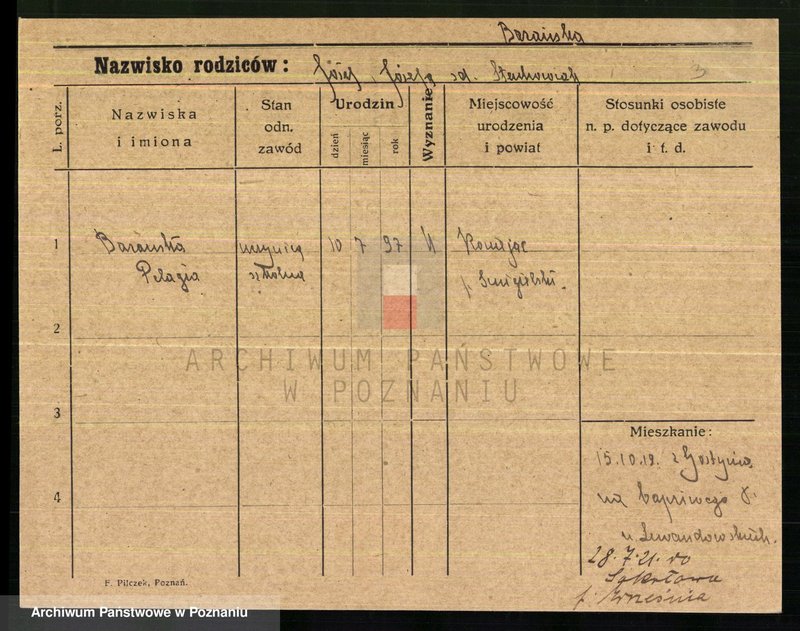 Barańska
Nazwisko rodziców: Józef, Józefa zd. Stachowiak 3
L. porz.
Nazwiska
i imiona
Stan
odn.
zawód
Urodzin
dzień
miesiąc
rok
Wyznanie
Miejscowość
urodzenia
i powiat
Stosunki osobiste
n. p. dotyczące zawodu
i t. d.
1 Barańska 10 7 97
Pelagia szkolna p. Śmigielski.
2
ARCHIWUM PAŃSTWOWE
W POZNANIU
3
Mieszkanie:
15.10.18. z Gostynia
4
na Capriwego 8.
u Lewandowskich.
28.7.21. do
p. Września
F. Pilczek, Poznań.
Archiwum Państwowe w Poznaniu